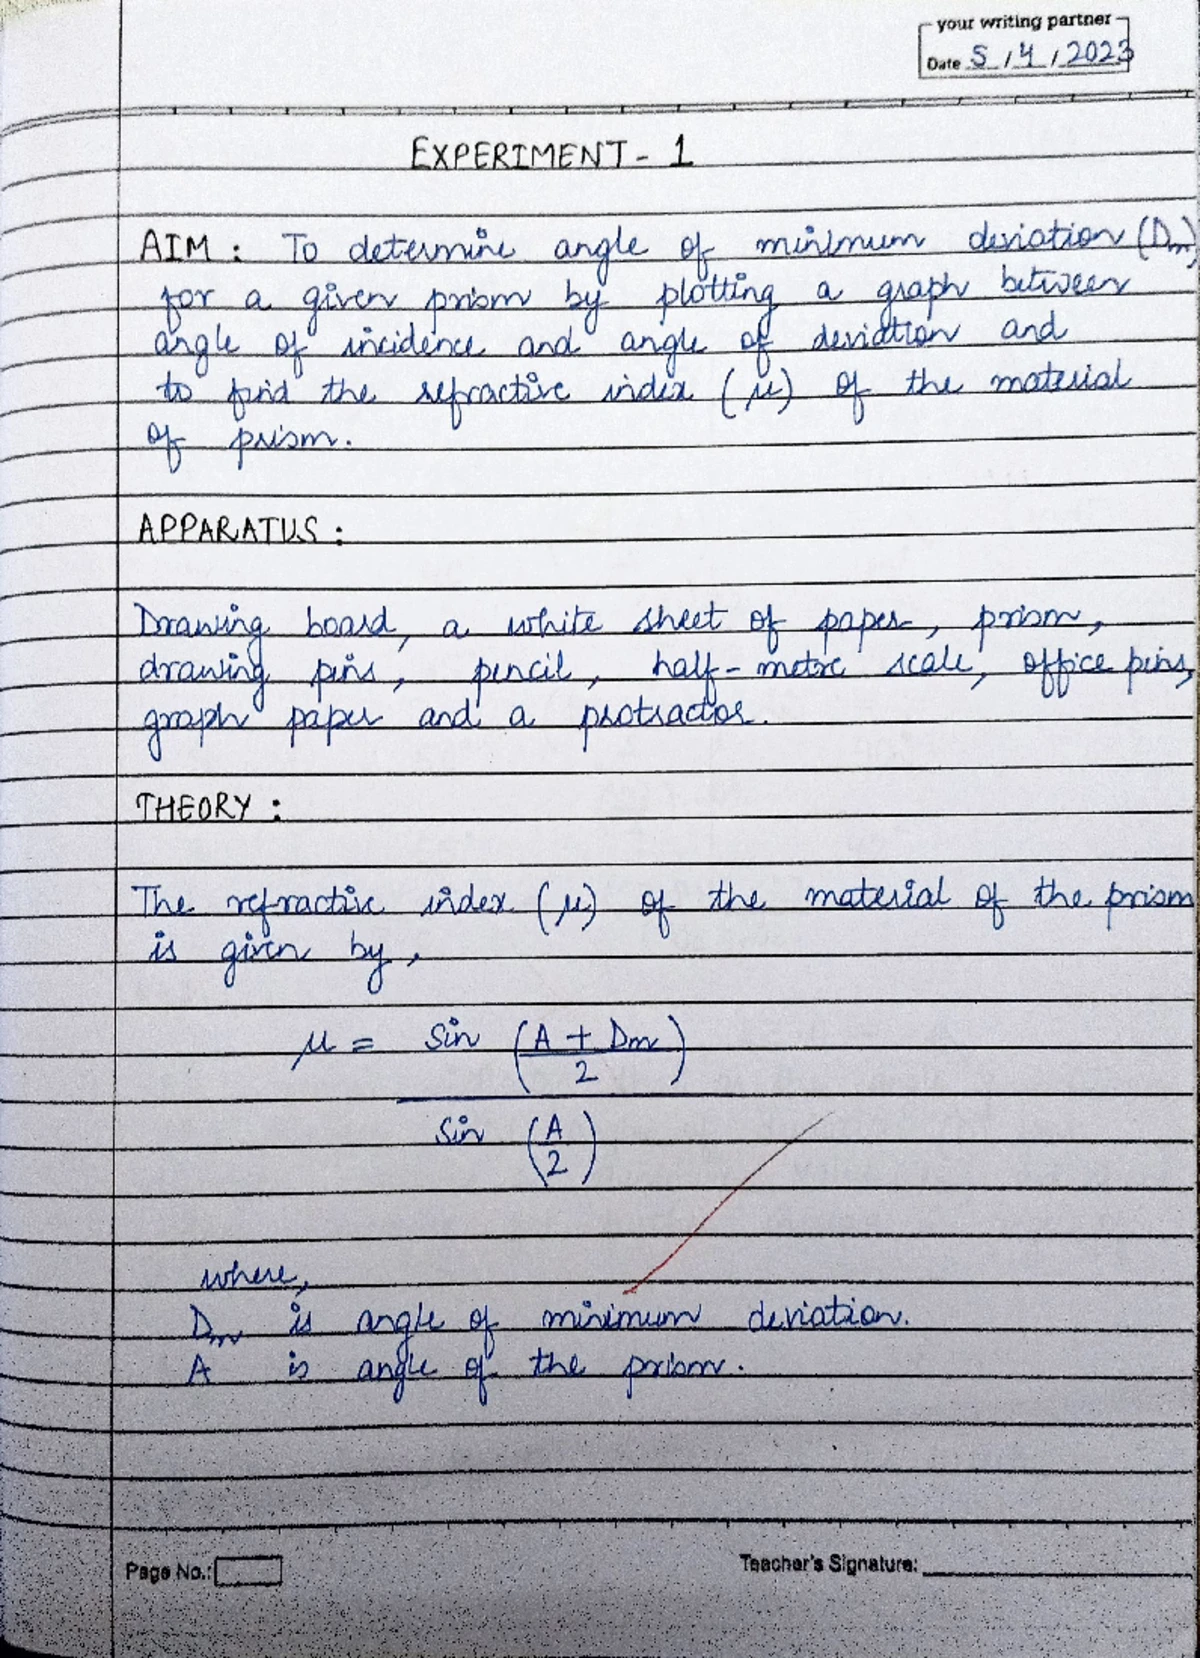 your writing partner
Date 5 / 4 / 2023
EXPERIMENT - 1
AIM : To determine angle of minimum deviation (Dm)
for a given prism by plotting a graph between
angle of incidence and angle of deviation and
to find the refractive index (μ) of the material
of prism.
APPARATUS :
Drawing board, a white sheet of paper, prism,
drawing pins, pencil, half-metre scale, office pins,
graph paper and a protractor.
THEORY :
The refractive index (μ) of the material of the prism
is given by,
μ = sin (A + Dm / 2)
sin (A / 2)
where,
Dm is angle of minimum deviation.
A is angle of the prism.
Page No.:
Teacher's Signature: